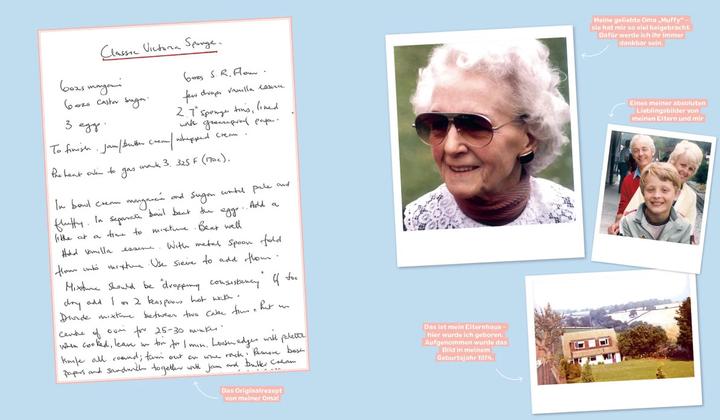 Classic Victoria Sponge.
6ozs margarine
6ozs S.R. Flour.
6ozs Castor sugar
few drops vanilla essence
3 eggs.
2 7" sponge tins, lined
with greaseproof paper.
To finish. jam/butter cream/whipped cream.
Pre heat oven to gas mark 3. 325 F (170c).
In bowl cream margarine and sugar until pale and
fluffy. In separate bowl beat the eggs. Add a
little at a time to mixture. Beat well
Add vanilla essence. With metal spoon fold
flour into mixture Use sieve to add flour.
Mixture should be "dropping consistency" If too
dry add 1 or 2 teaspoons hot water.
Divide mixture between two cake tins. Put in
centre of oven for 25-30 minutes.
When cooked, leave in tin for 1 min. Loosen edges with palette
knife all round; turn out on wire rack. Remove base
papers and sandwich together with jam and butter cream
Das Originalrezept
von meiner Oma!
Meine geliebte Oma „Muffy" –
sie hat mir so viel beigebracht.
Dafür werde ich ihr immer
dankbar sein.
Eines meiner absoluten
Lieblingsbilder von
meinen Eltern und mir
Das ist mein Elternhaus –
hier wurde ich geboren.
Aufgenommen wurde das
Bild in meinem
Geburtsjahr 1974.